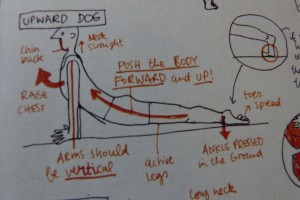 UPWARD DOG
chin
back
Neck
straight
RAISE
CHEST
PUSH the BODY
FORWARD and UP!
toes
spread
ARMS should
be vertical
active
legs
ANKLE PRESSED
in the Ground
Long neck